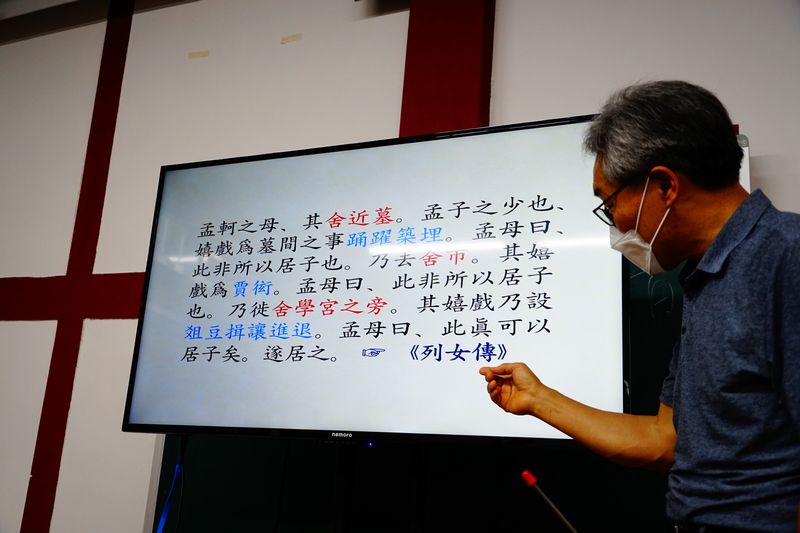 孟軻之母、其舍近墓。孟子之少也、
嬉戲爲墓間之事踊躍築埋。孟母曰、
此非所以居子也。乃去舍市。其嬉
戲爲賈衒。孟母曰、此非所以居子
也。乃徙舍學宮之旁。其嬉戲乃設
俎豆揖讓進退。孟母曰、此眞可以
居子矣。遂居之。☞ 《列女傳》
nemoro